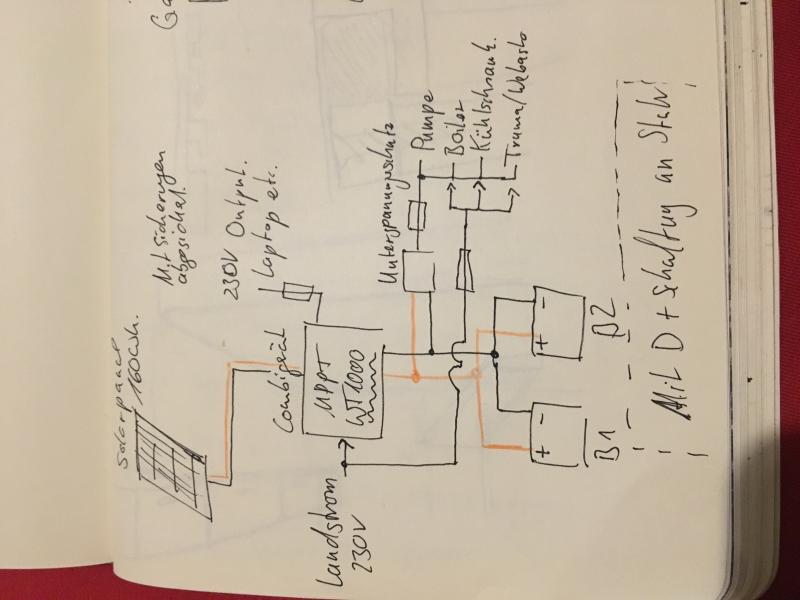 Solarpanel
160Wh.
Mit Sicherungen
abgesichat.
230V Output.
Laptop etc.
Combigerät
MPPT
WT1000
Landstrom
230V
Unterspanungsschutz
Pumpe
Boiler
Kühlschrank.
Truma/Webasto
+ -
B1
+ -
B2
Mit D+ Schaltung an